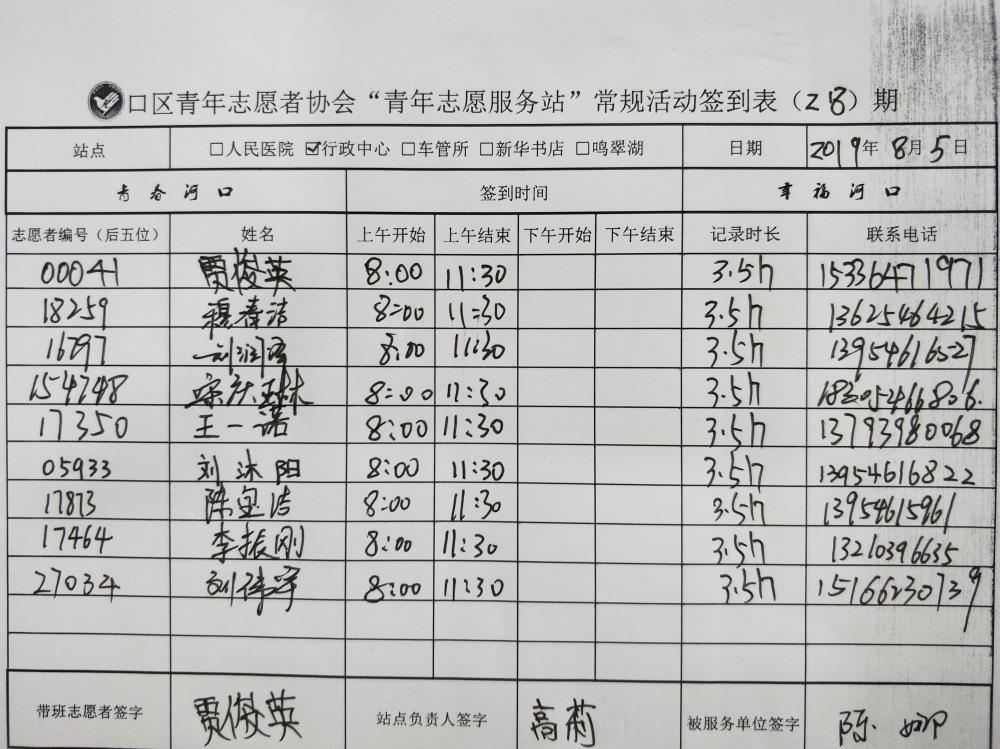 口区青年志愿者协会“青年志愿服务站”常规活动签到表（28）期
站点 □人民医院 ☑行政中心 □车管所 □新华书店 □鸣翠湖 日期 2019年 8月 5日
青春河口 签到时间 幸福河口
志愿者编号（后五位） 姓名 上午开始 上午结束 下午开始 下午结束 记录时长 联系电话
00041 贾俊英 8:00 11:30 3.5h 15336471971
18259 穆春洁 8:00 11:30 3.5h 13625464215
16797 刘润 8:00 11:30 3.5h 13954616527
154748 宋庆琳 8:00 11:30 3.5h
17350 王一诺 8:00 11:30 3.5h 13793980068
05933 刘沐阳 8:00 11:30 3.5h 13954616822
17873 陈宝洁 8:00 11:30 3.5h 13954615961
17464 李振刚 8:00 11:30 3.5h 13210396635
27034 刘 8:00 11:30 3.5h 15166230739
带班志愿者签字 贾俊英 站点负责人签字 高莉 被服务单位签字 陈